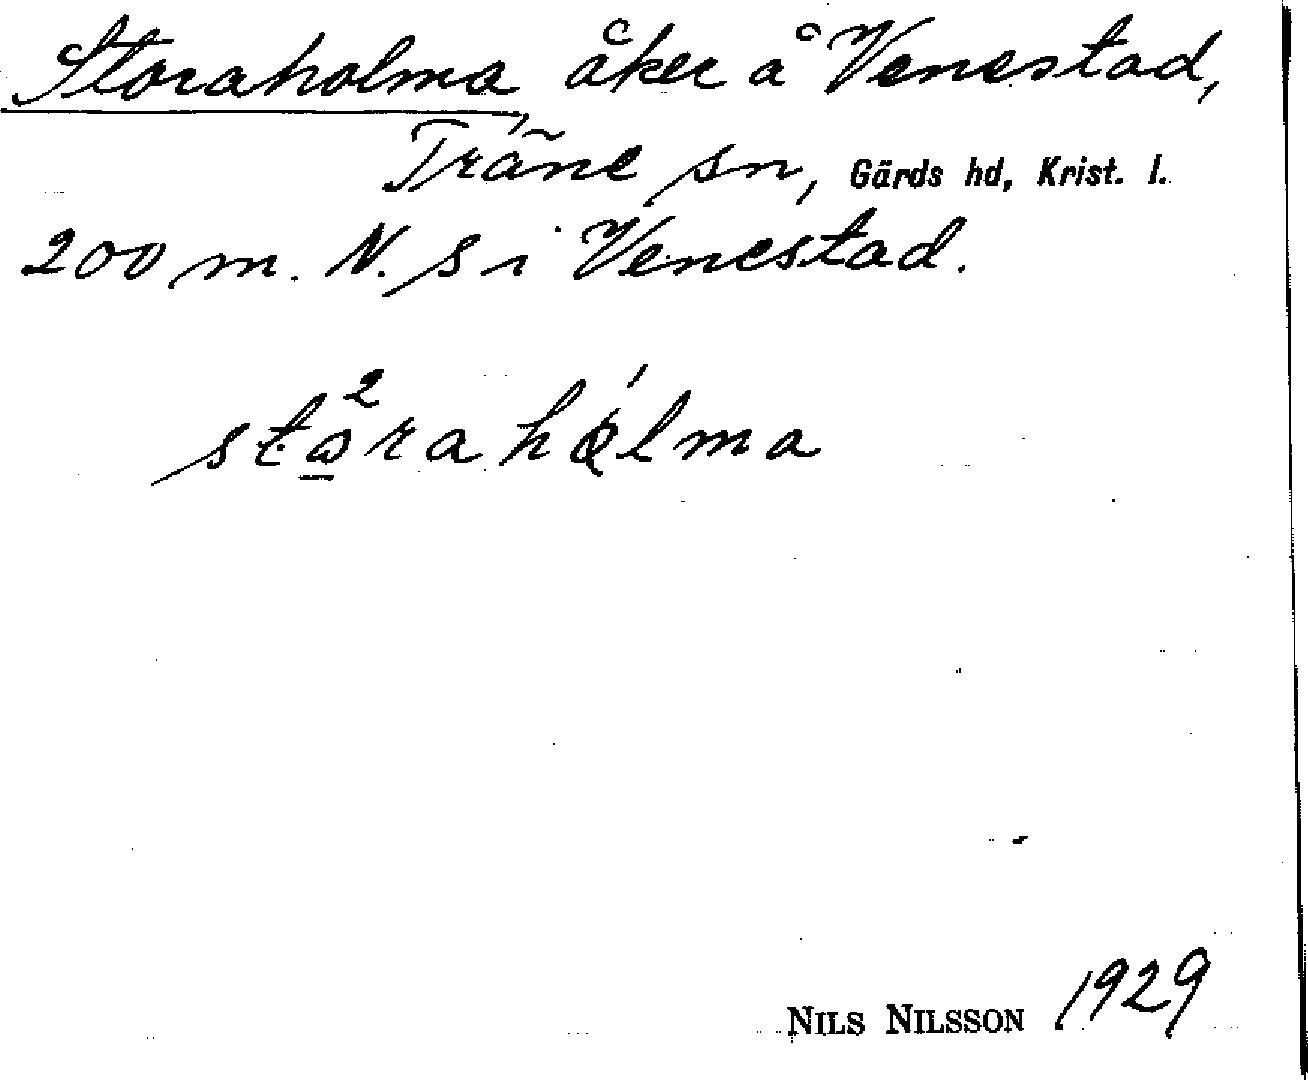 Storaholma, åker å Venestad,
Träne sn, Gärds hd, Krist. l.
200 m. N. si Venestad.
storaholma
NILS NILSSON 1929